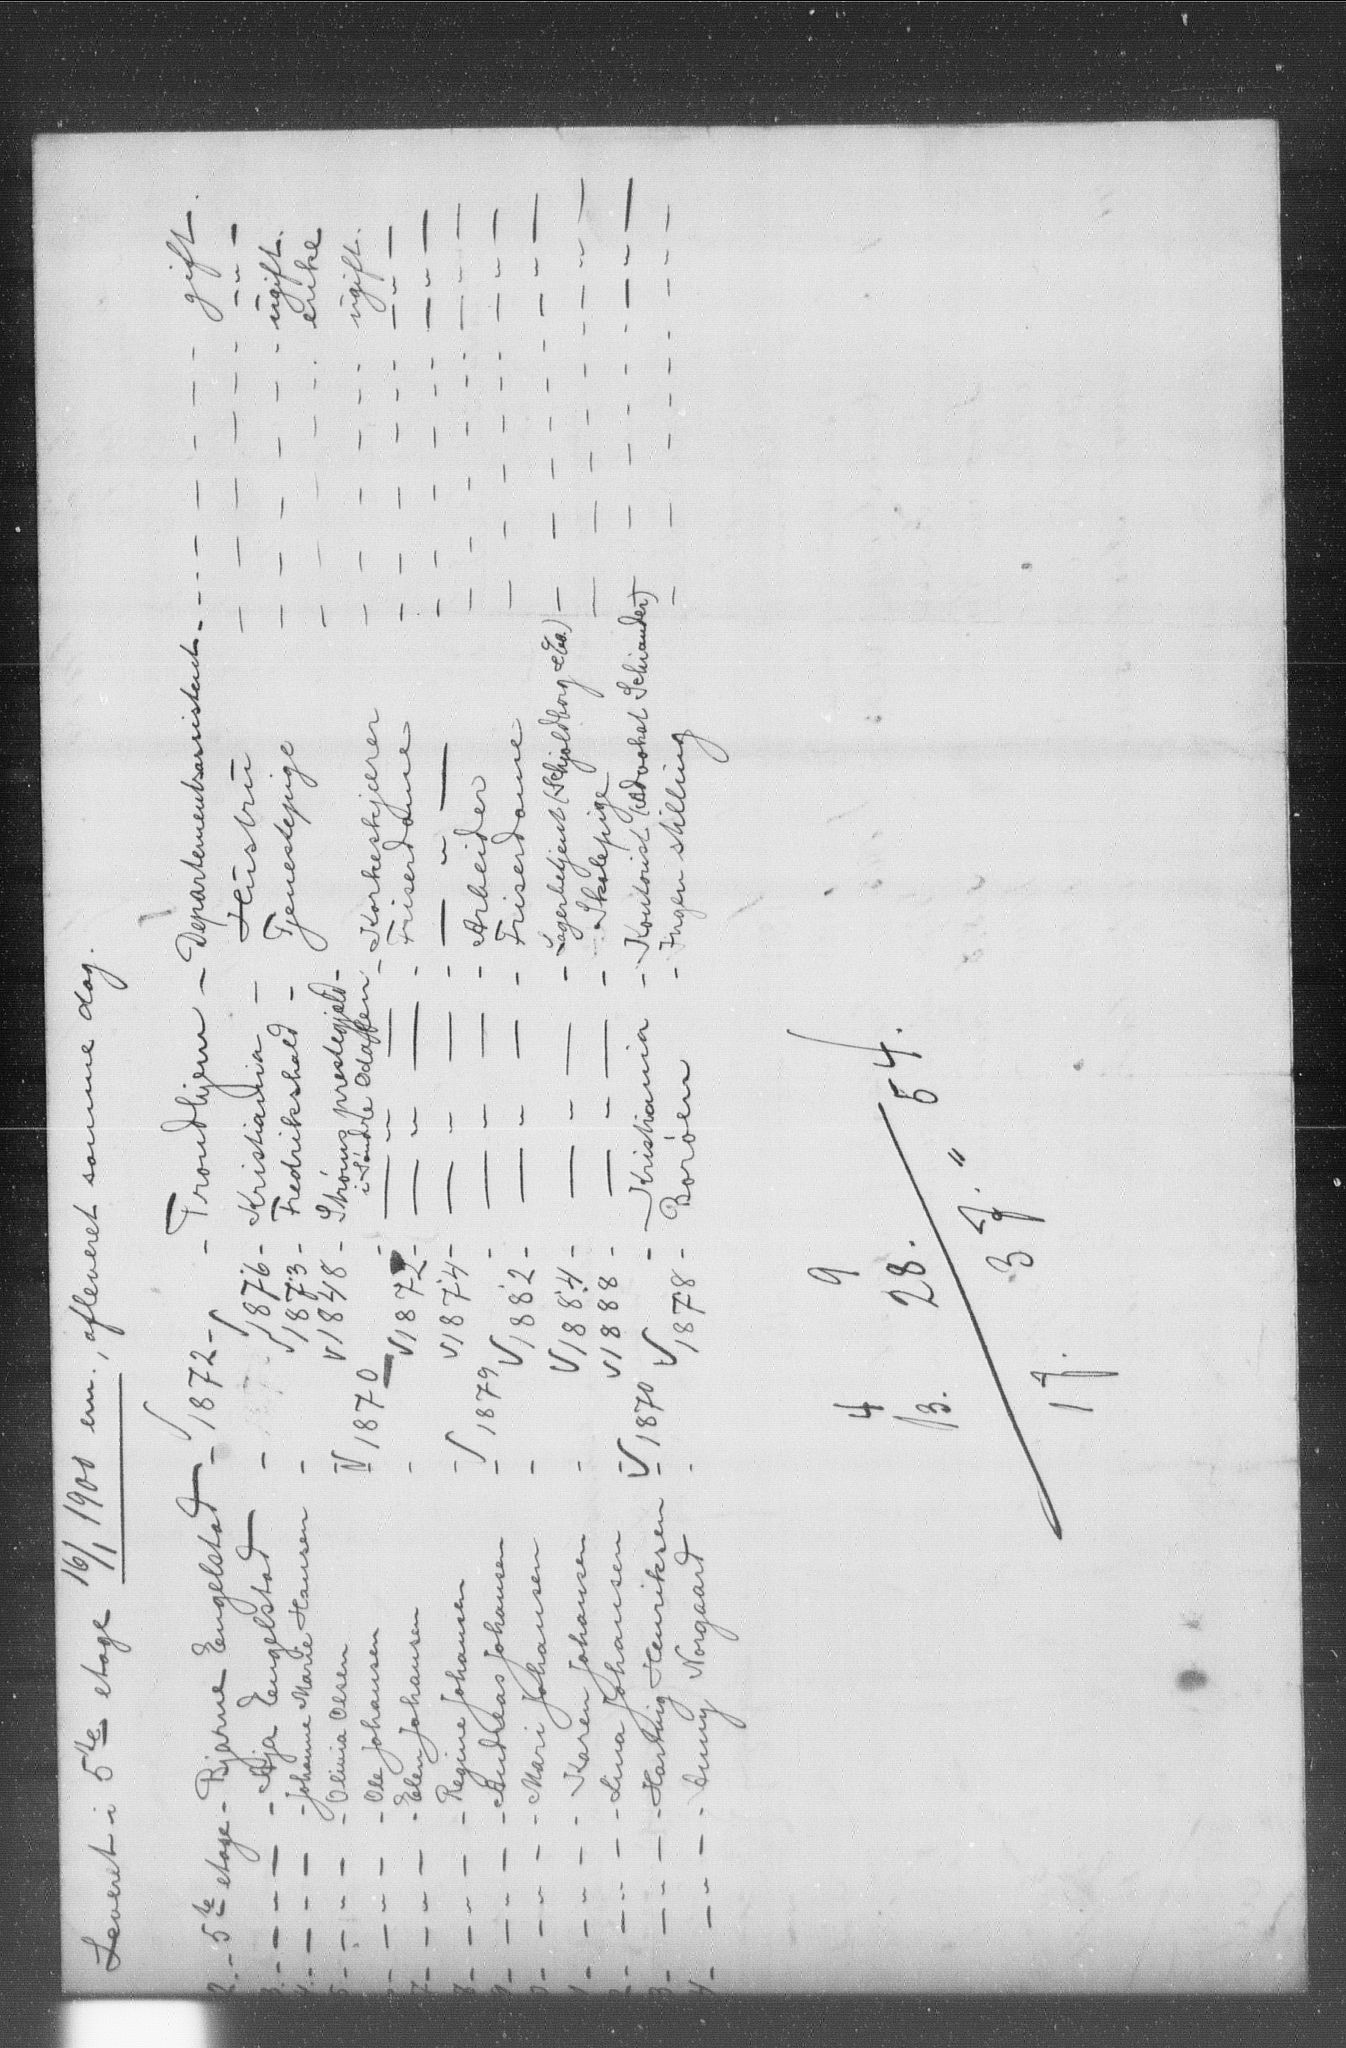 Leveret i 5te etage 16/1 1900 em., afleveret samme dag.
2. - 5te etage - Bjarne Engelstad - 1872 - Trondhjem - Departementsassistent - - - - - gift.
3. - - " - - Aja Engelstad - 1876 - Kristiania - Hustru - - - - - - " -
4. - - " - - Johanne Marie Hansen - 1873 - Fredrikshald - Tjenestepige - - - - - ugift.
5 - - " - - Olivia Olsen - 1848 - Strøms prestegjeld i Søndre Odalen - - - - - enke
- - " - - Ole Johansen - 1870 - - " - - Korkeskjærer - - - - - ugift.
7 - - " - - Elen Johansen - 1872 - - " - - Friserdame - - - - - - " -
8 - - " - - Regine Johansen - 1874 - - " - - - " - - - - - - - " -
9 - - " - - Andreas Johansen - 1879 - - " - - Arbeider - - - - - - " -
0 - - " - - Mari Johansen - 1882 - - " - - Friserdame - - - - - - " -
1 - - " - - Karen Johansen - 1884 - - " - - Lagerbetjent (Schjoldborg & Co.) - - - - " -
2 - - " - - Lina Johansen - 1888 - - " - - Skolepige - - - - - - " -
3 - - " - - Hartvig Henriksen - 1870 - Kristiania - Kontorist (Advokat Schiander) - - - - " -
4 - - " - - Anny Norgaard - 1878 - Borøen - Ingen stilling - - - - - - " -
4 9
13. 28. 54.
17. 37. "